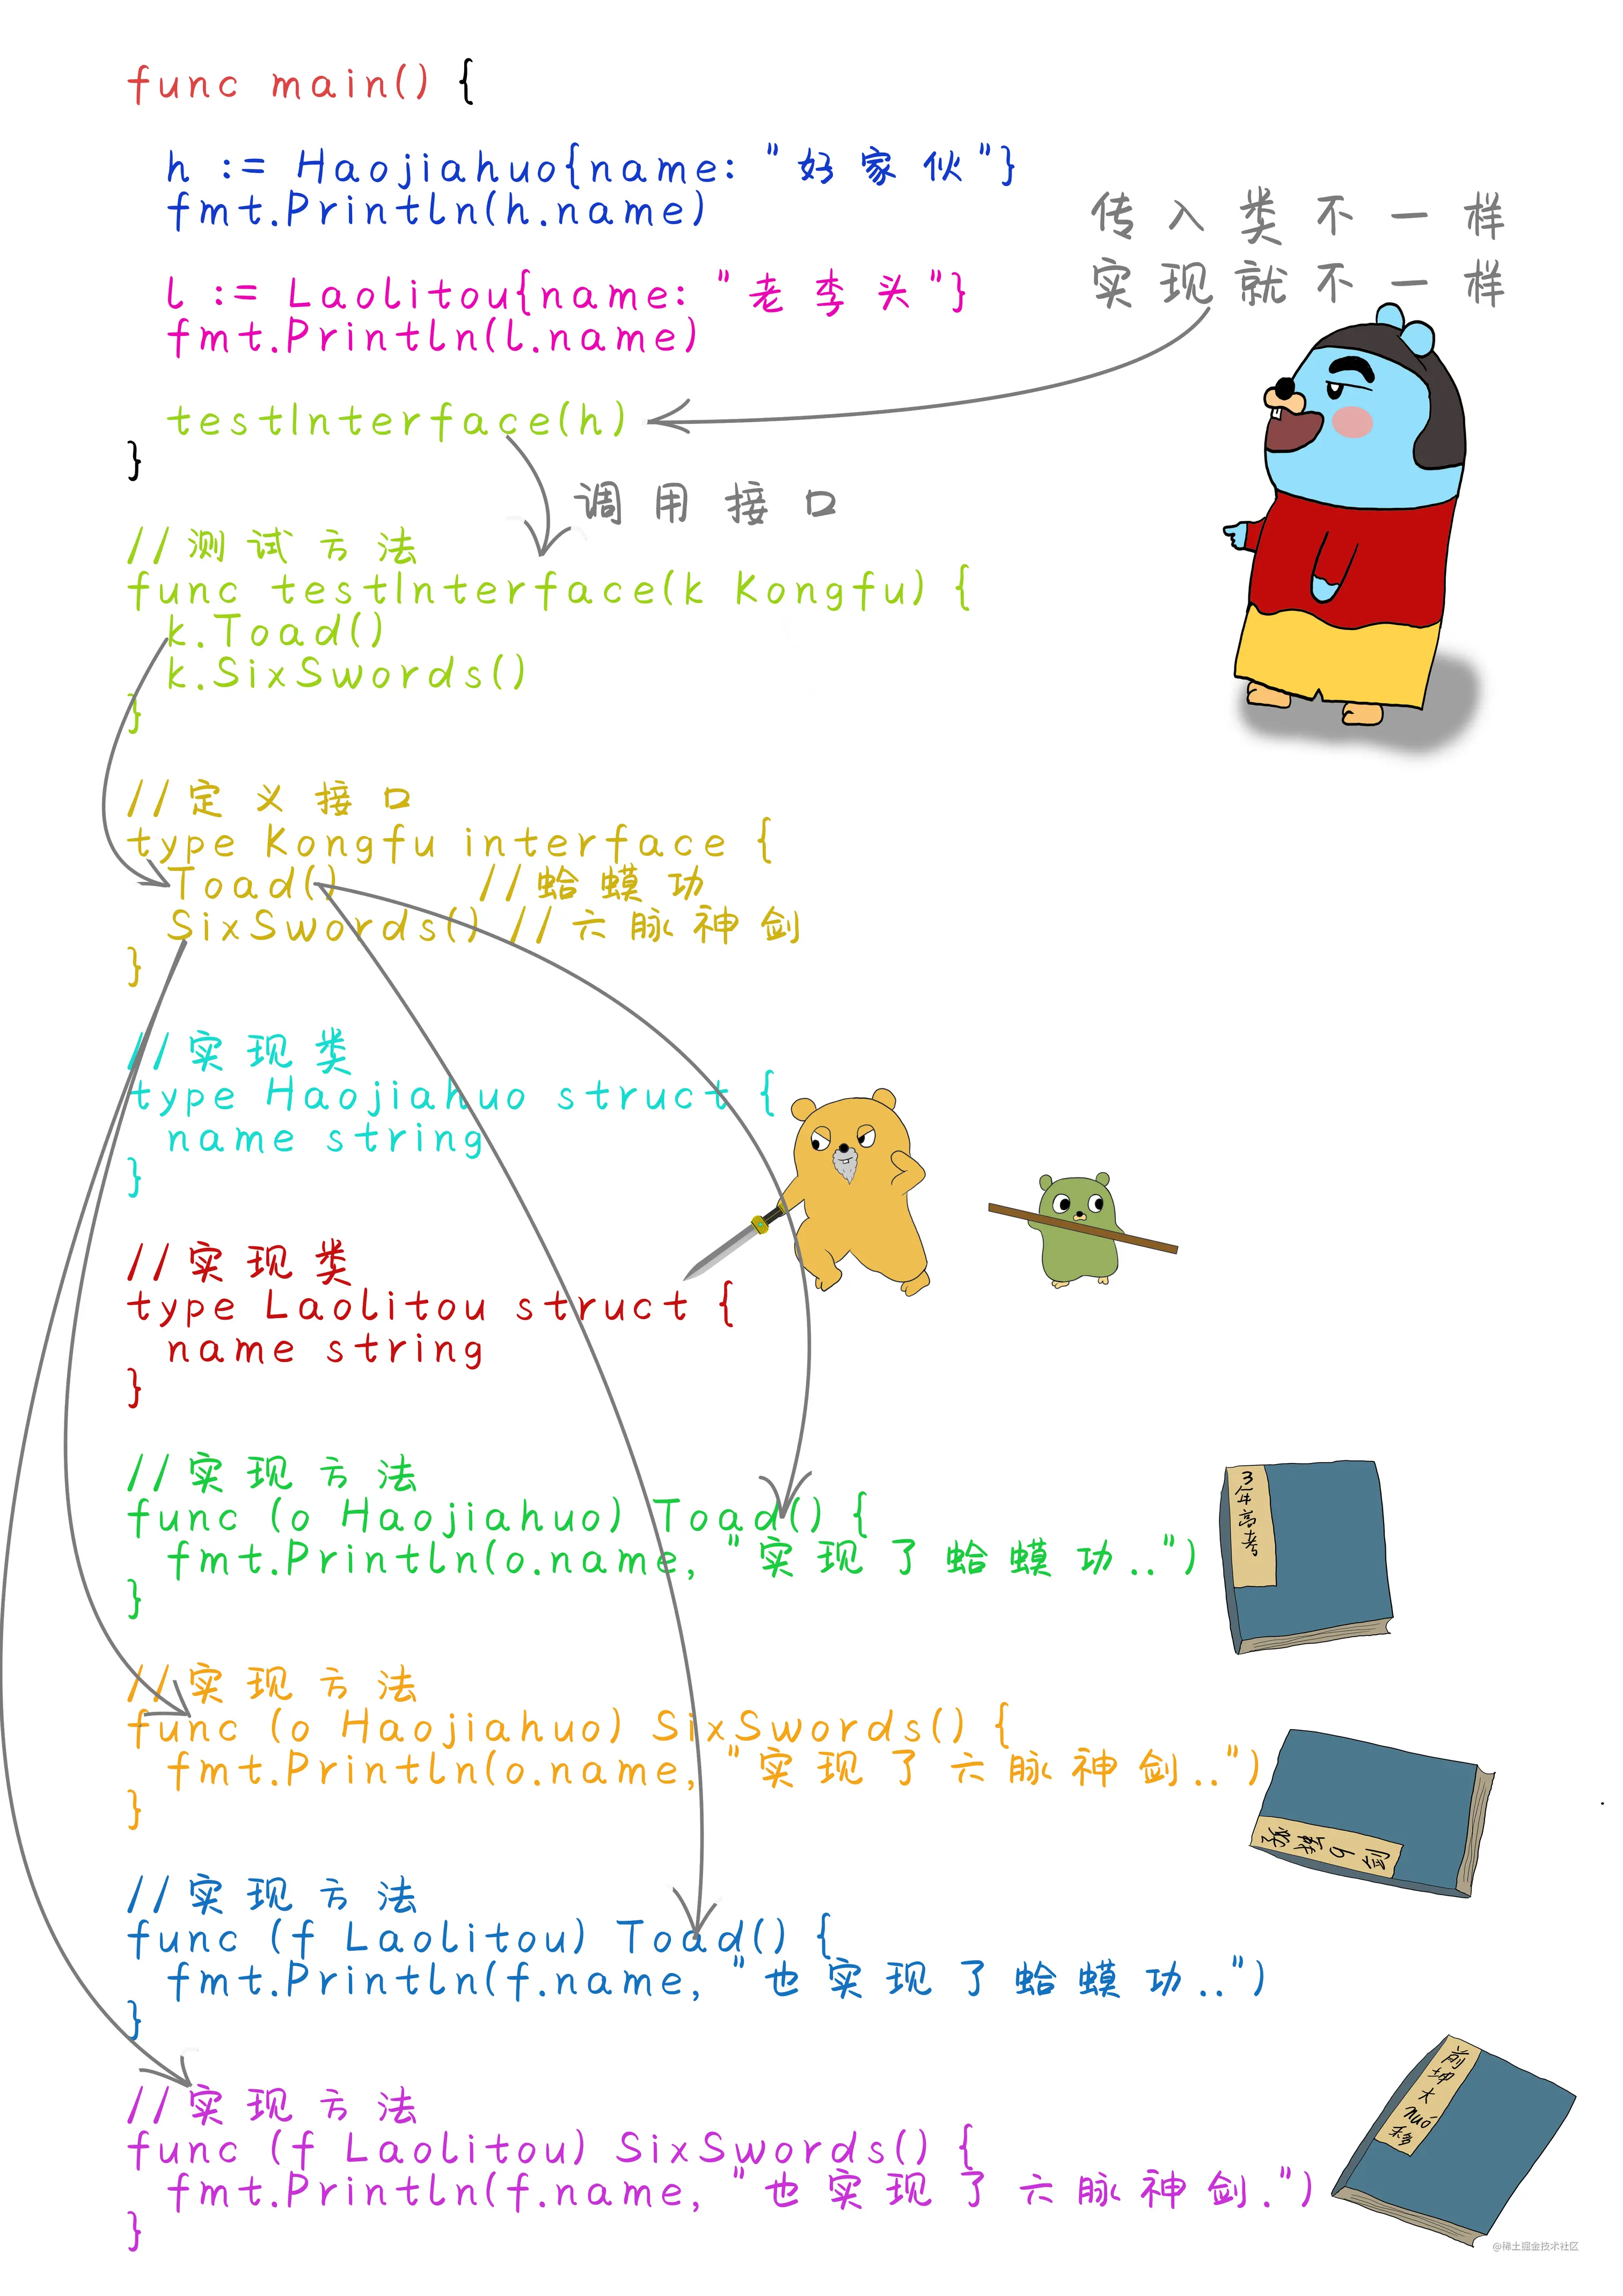 func main() {
h := Haojiahuo{name: "好家伙"}
fmt.Println(h.name)
传入类不一样
l := Laolitou{name: "老李头"}
实现就不一样
fmt.Println(l.name)
testInterface(h)
}
调用接口
//测试方法
func testInterface(k Kongfu) {
k.Toad()
k.SixSwords()
}
//定义接口
type Kongfu interface {
Toad() //蛤蟆功
SixSwords() //六脉神剑
}
//实现类
type Haojiahuo struct {
name string
}
//实现类
type Laolitou struct {
name string
}
//实现方法
func (o Haojiahuo) Toad() {
fmt.Println(o.name, "实现了蛤蟆功..")
}
3年高考
//实现方法
func (o Haojiahuo) SixSwords() {
fmt.Println(o.name, "实现了六脉神剑..")
}
//实现方法
func (f Laolitou) Toad() {
fmt.Println(f.name, "也实现了蛤蟆功..")
}
//实现方法
func (f Laolitou) SixSwords() {
fmt.Println(f.name, "也实现了六脉神剑.")
}
前坤大nuó移
@稀土掘金技术社区